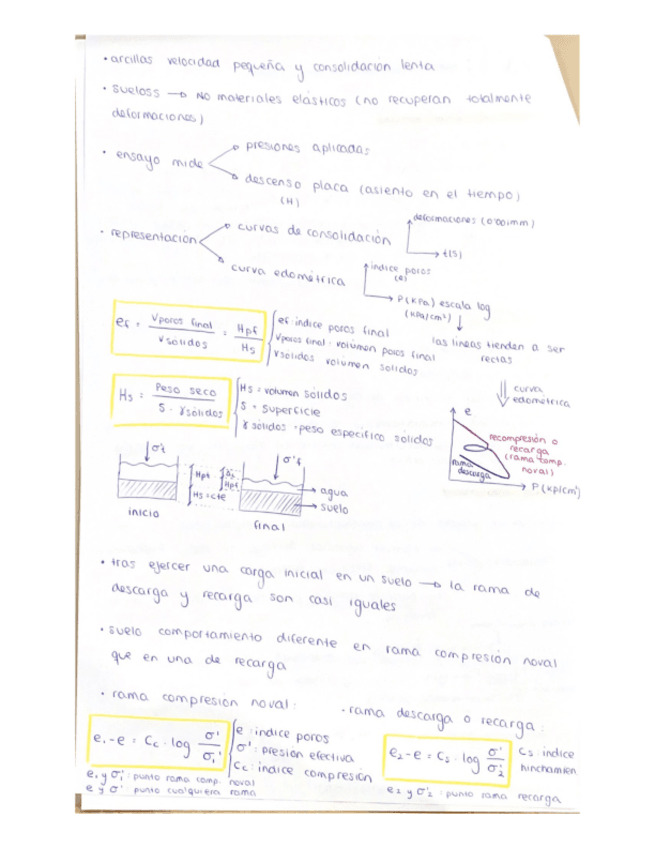 • arcillas velocidad pequeña y consolidación lenta
• sueloss → NO materiales elásticos (no recuperan totalmente
deformaciones)
• ensayo mide
presiones aplicadas
descenso placa (asiento en el tiempo)
(H)
• representación
curvas de consolidación
deformaciones (0'001mm)
t(s)
curva edométrica
índice poros
(e)
P(kPa) escala log
(kpa/cm²)
las líneas tienden a ser
rectas
ef = Vporos final / Vsólidos = Hpf / Hs
ef: índice poros final
Vporos final: volumen poros final
Vsólidos volumen sólidos
curva
edométrica
Hs = Peso seco / S · γsólidos
Hs = volumen sólidos
S = superficie
γ sólidos = peso específico sólidos
e
recompresión o
recarga
(rama comp.
noval)
rama
descarga
P(kp/cm²)
σ'f
Hpf
Hs = cte
agua
suelo
inicio
final
• tras ejercer una carga inicial en un suelo → la rama de
descarga y recarga son casi iguales
• suelo comportamiento diferente en rama compresión noval
que en una de recarga
• rama compresión noval:
• rama descarga o recarga:
e₁-e = Cc · log σ' / σ₁'
e índice poros
σ': presión efectiva
Cc: índice compresión
e₂-e = Cs · log σ' / σ'₂
Cs índice
hinchamien
e₁ y σ₁': punto rama comp. noval
e y σ' punto cualquiera rama
e₂ y σ'₂: punto rama recarga